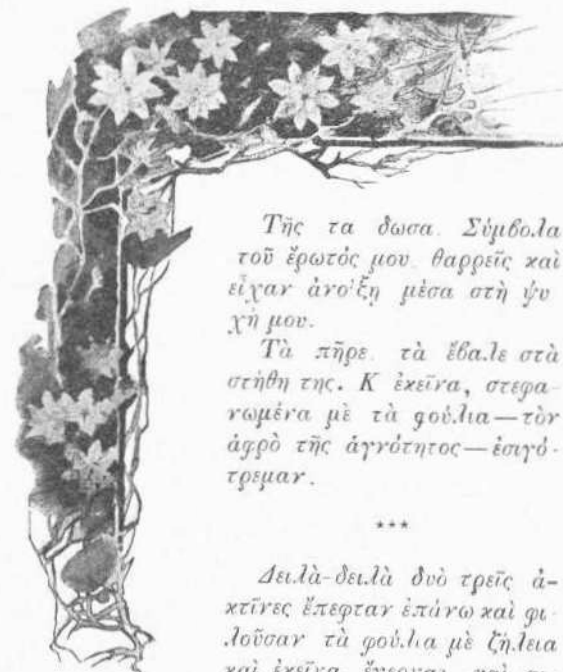 Τῆς τα δωσα. Σύμβολα
τοῦ ἔρωτός μου. θαρρεῖς καὶ
εἶχαν ἀνοίξη μέσα στὴ ψυ
χή μου.
Τὰ πῆρε. τὰ ἔβαλε στὰ
στήθη της. Κ ἐκεῖνα, στεφα-
νωμένα μὲ τὰ φούλια—τὸν
ἀφρὸ τῆς ἁγνότητος—ἐσιγό-
τρεμαν.
***
Δειλὰ-δειλὰ δυὸ τρεῖς ἀ-
κτῖνες ἔπεφταν ἐπάνω καὶ φι-
λοῦσαν τὰ φούλια μὲ ζήλεια
καὶ ἐκεῖνα